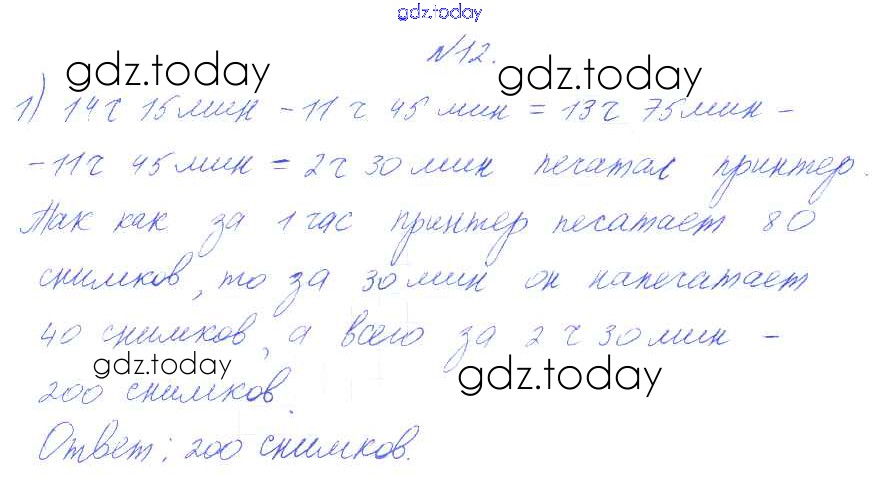 gdz.today
№12.
gdz.today gdz.today
1) 14ч 15мин - 11ч 45мин = 13ч 75мин -
- 11ч 45мин = 2ч 30мин печатал принтер.
Так как за 1 час принтер печатает 80
снимков, то за 30мин он напечатает
40 снимков, а всего за 2ч 30мин -
gdz.today gdz.today
200 снимков.
Ответ: 200 снимков.